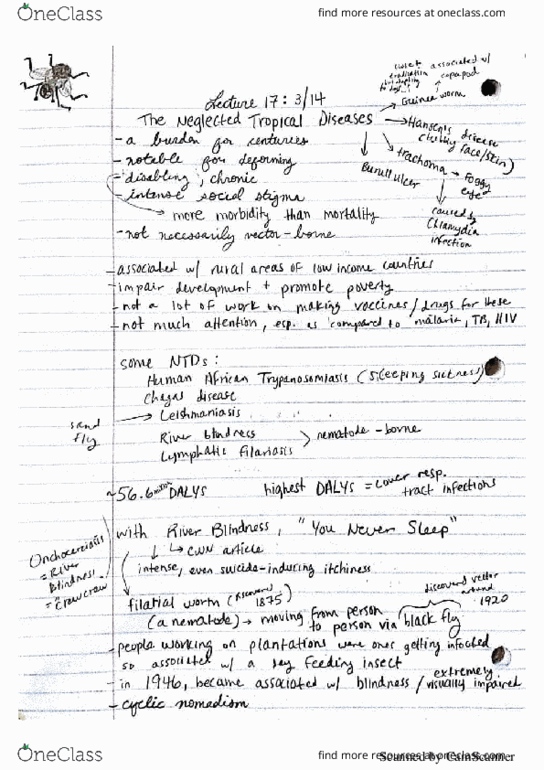 OneClass
find more resources at oneclass.com
Lecture 17: 3/14
The Neglected Tropical Diseases
associated w/ copapod
Guinea worm
Hansen's disease
face/skin)
trachoma → foggy eye
Burull ulcer
caused by Chlamydia infection
- a burden for centuries
- notable for deforming
- disabling, chronic
- intense social stigma
more morbidity than mortality
- not necessarily vector-borne
- associated w/ rural areas of low income countries
- impair development + promote poverty
- not a lot of work on making vaccines/drugs for these
- not much attention, esp. as compared to malaria, TB, HIV
some NTDs:
Human African Trypanosomiasis (Sleeping sickness)
Chagas disease
sand fly → Leishmaniasis
River blindness
Lymphatic Filariasis
> nematode-borne
~56.6 DALYS
highest DALYS = lower resp. tract infections
with River Blindness, "You Never Sleep"
↳ CNN article
Onchocerciasis
= River Blindness
= crawcraw
intense, even suicide-inducing itchiness
filarial worm (discovered 1875)
discovered vector around 1920
(a nematode) → moving from person to person via black fly
- people working on plantations were ones getting infected
so associated w/ a day feeding insect
- in 1946, became associated w/ blindness/extremely visually impaired
- cyclic nomadism
OneClass
find more resources at oneclass.com
Scanned by CamScanner